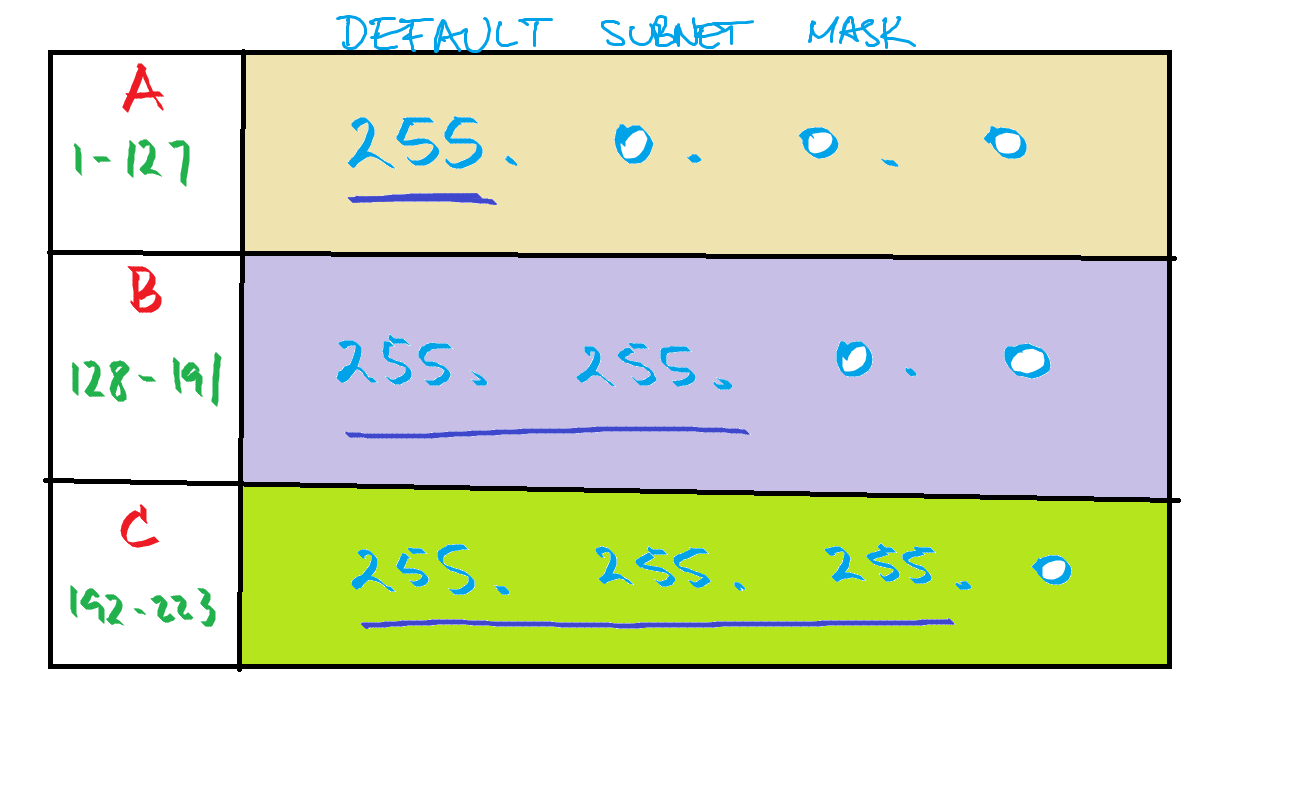 DEFAULT SUBNET MASK
A
1-127
255. 0. 0. 0
B
128-191
255. 255. 0. 0
C
192-223
255. 255. 255. 0